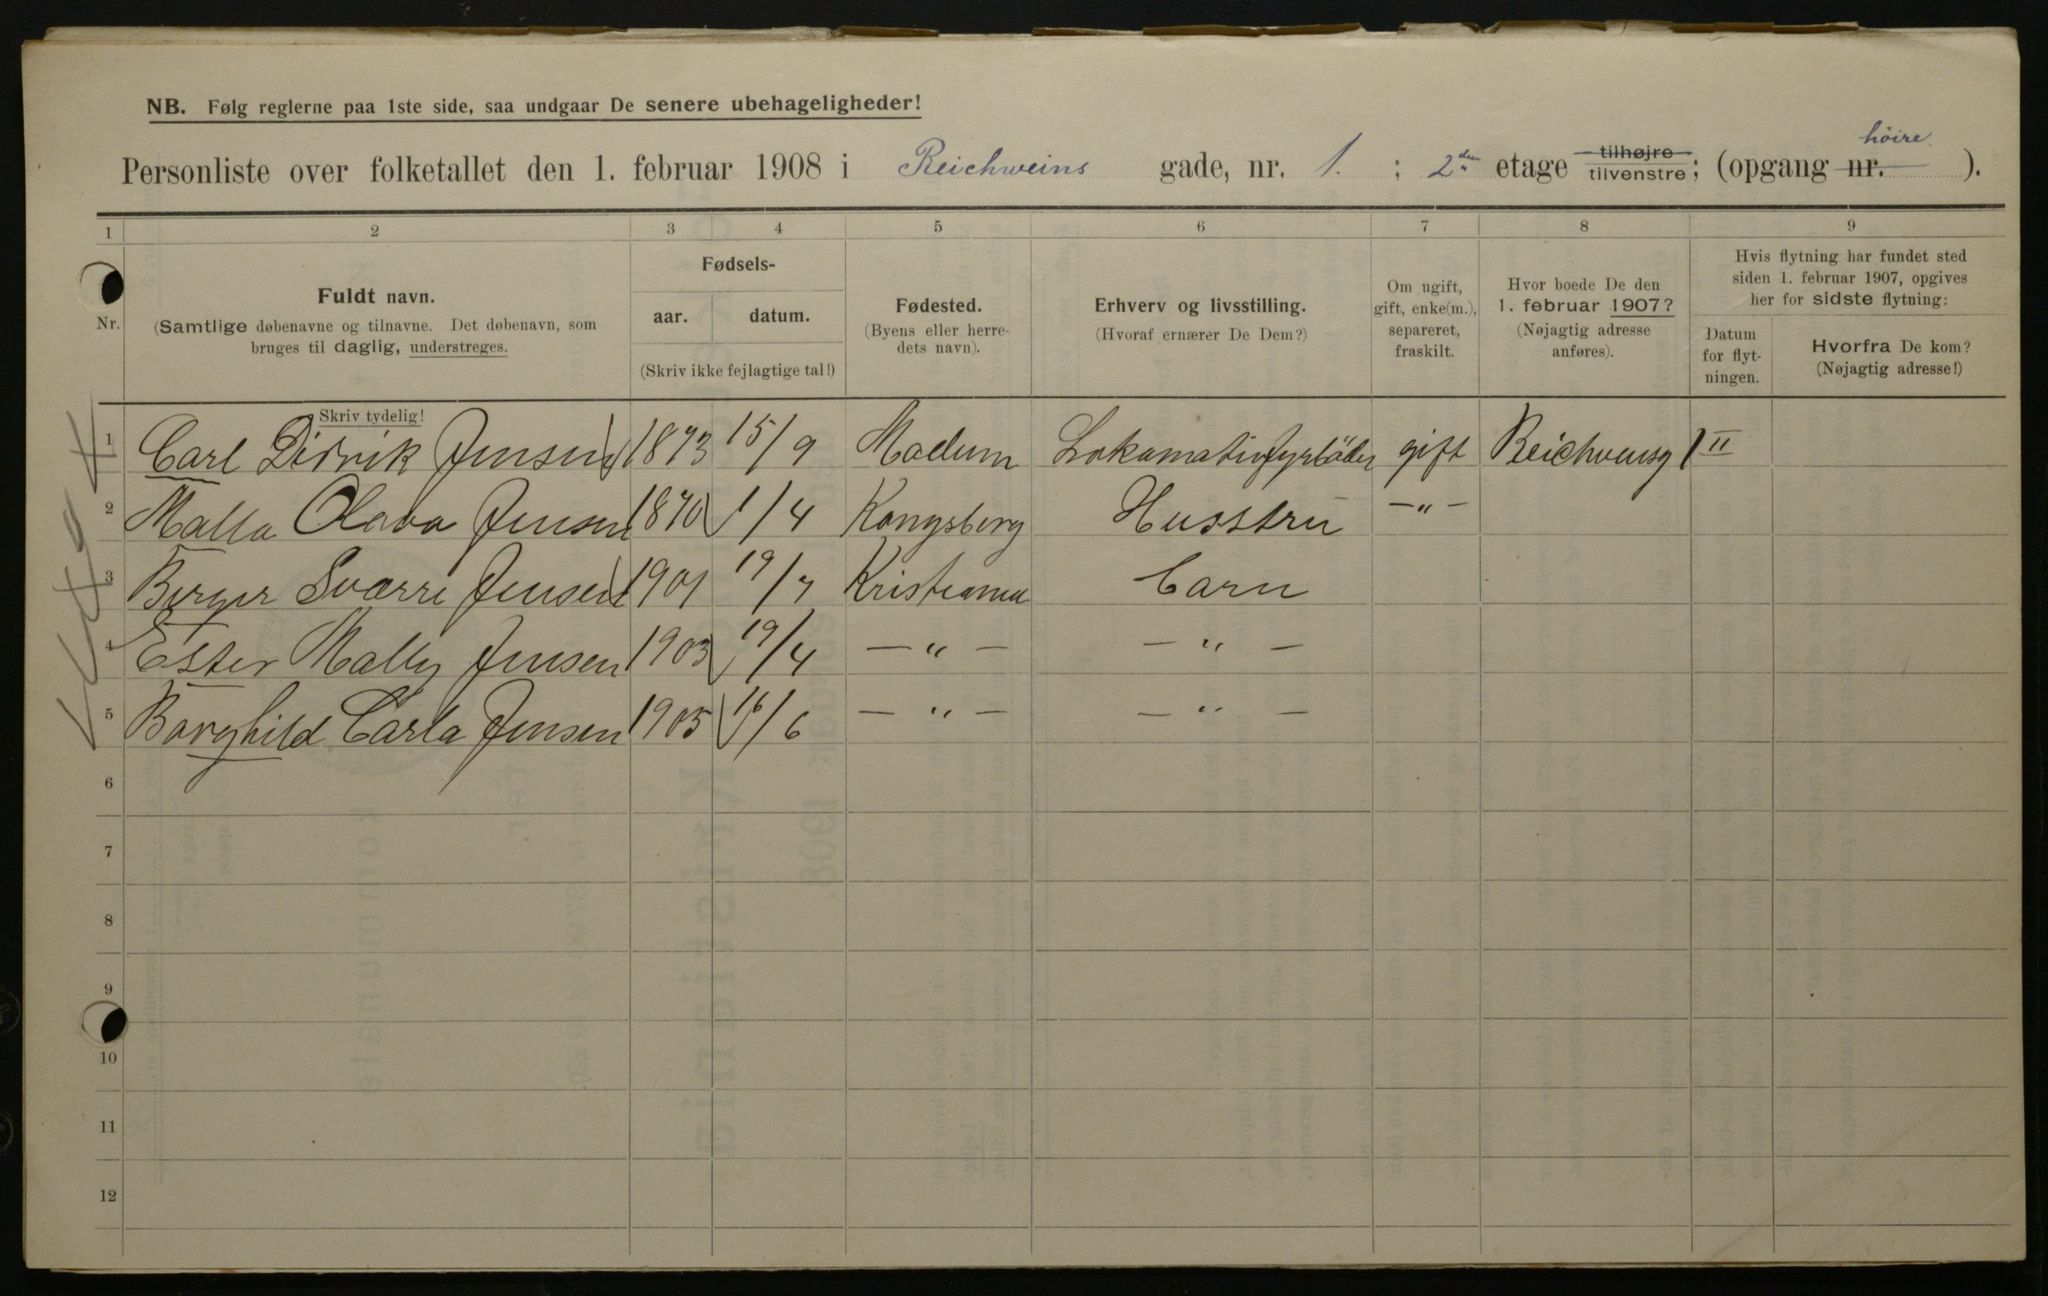 NB. Følg reglerne paa 1ste side, saa undgaar De senere ubehageligheder!
høire
Personliste over folketallet den 1. februar 1908 i Reichweins gade, nr. 1. ; 2den etage tilhøjre tilvenstre; (opgang nr. ).
1 2 3 4 5 6 7 8 9
Nr.
Fuldt navn.
(Samtlige døbenavne og tilnavne. Det døbenavn, som
bruges til daglig, understreges.
Skriv tydelig!
Fødsels-
aar. datum.
(Skriv ikke fejlagtige tal!)
Fødested.
(Byens eller herre-
dets navn).
Erhverv og livsstilling.
(Hvoraf ernærer De Dem?)
Om ugift,
gift, enke(m.),
separeret,
fraskilt.
Hvor boede De den
1. februar 1907?
(Nøjagtig adresse
anføres).
Hvis flytning har fundet sted
siden 1. februar 1907, opgives
her for sidste flytning:
Datum
for flyt-
ningen.
Hvorfra De kom?
(Nøjagtig adresse!)
1 Carl Didrik Jensen 1873 15/9 Modum Lokamotivfyrböder gift Reichvensg 1 II
2 Malla Olava Jensen 1870 1/4 Kongsberg Husstru —„—
3 Birger Sværre Jensen 1901 19/7 Kristiania Barn
4 Ester Mally Jensen 1903 19/4 —„— —„—
5 Borghild Carla Jensen 1905 16/6 —„— —„—
6
7
8
9
10
11
12